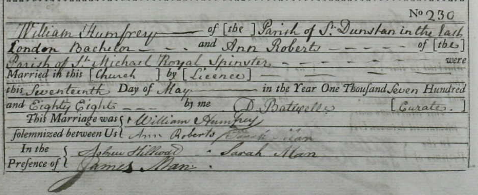 No 230
William Humfrey — of [the] Parish of St. Dunstan in the East
London Bachelor — and Ann Roberts — of [the]
Parish of St. Michael Royal Spinster — were
Married in this [Church] by [Licence]
this Seventeenth Day of May — in the Year One Thousand Seven Hundred
and Eighty Eights — by me D. Batwell [Curate.]
This Marriage was { William Humfrey
solemnized between Us { Ann Roberts
In the { Sarah Man
Presence of { James Man